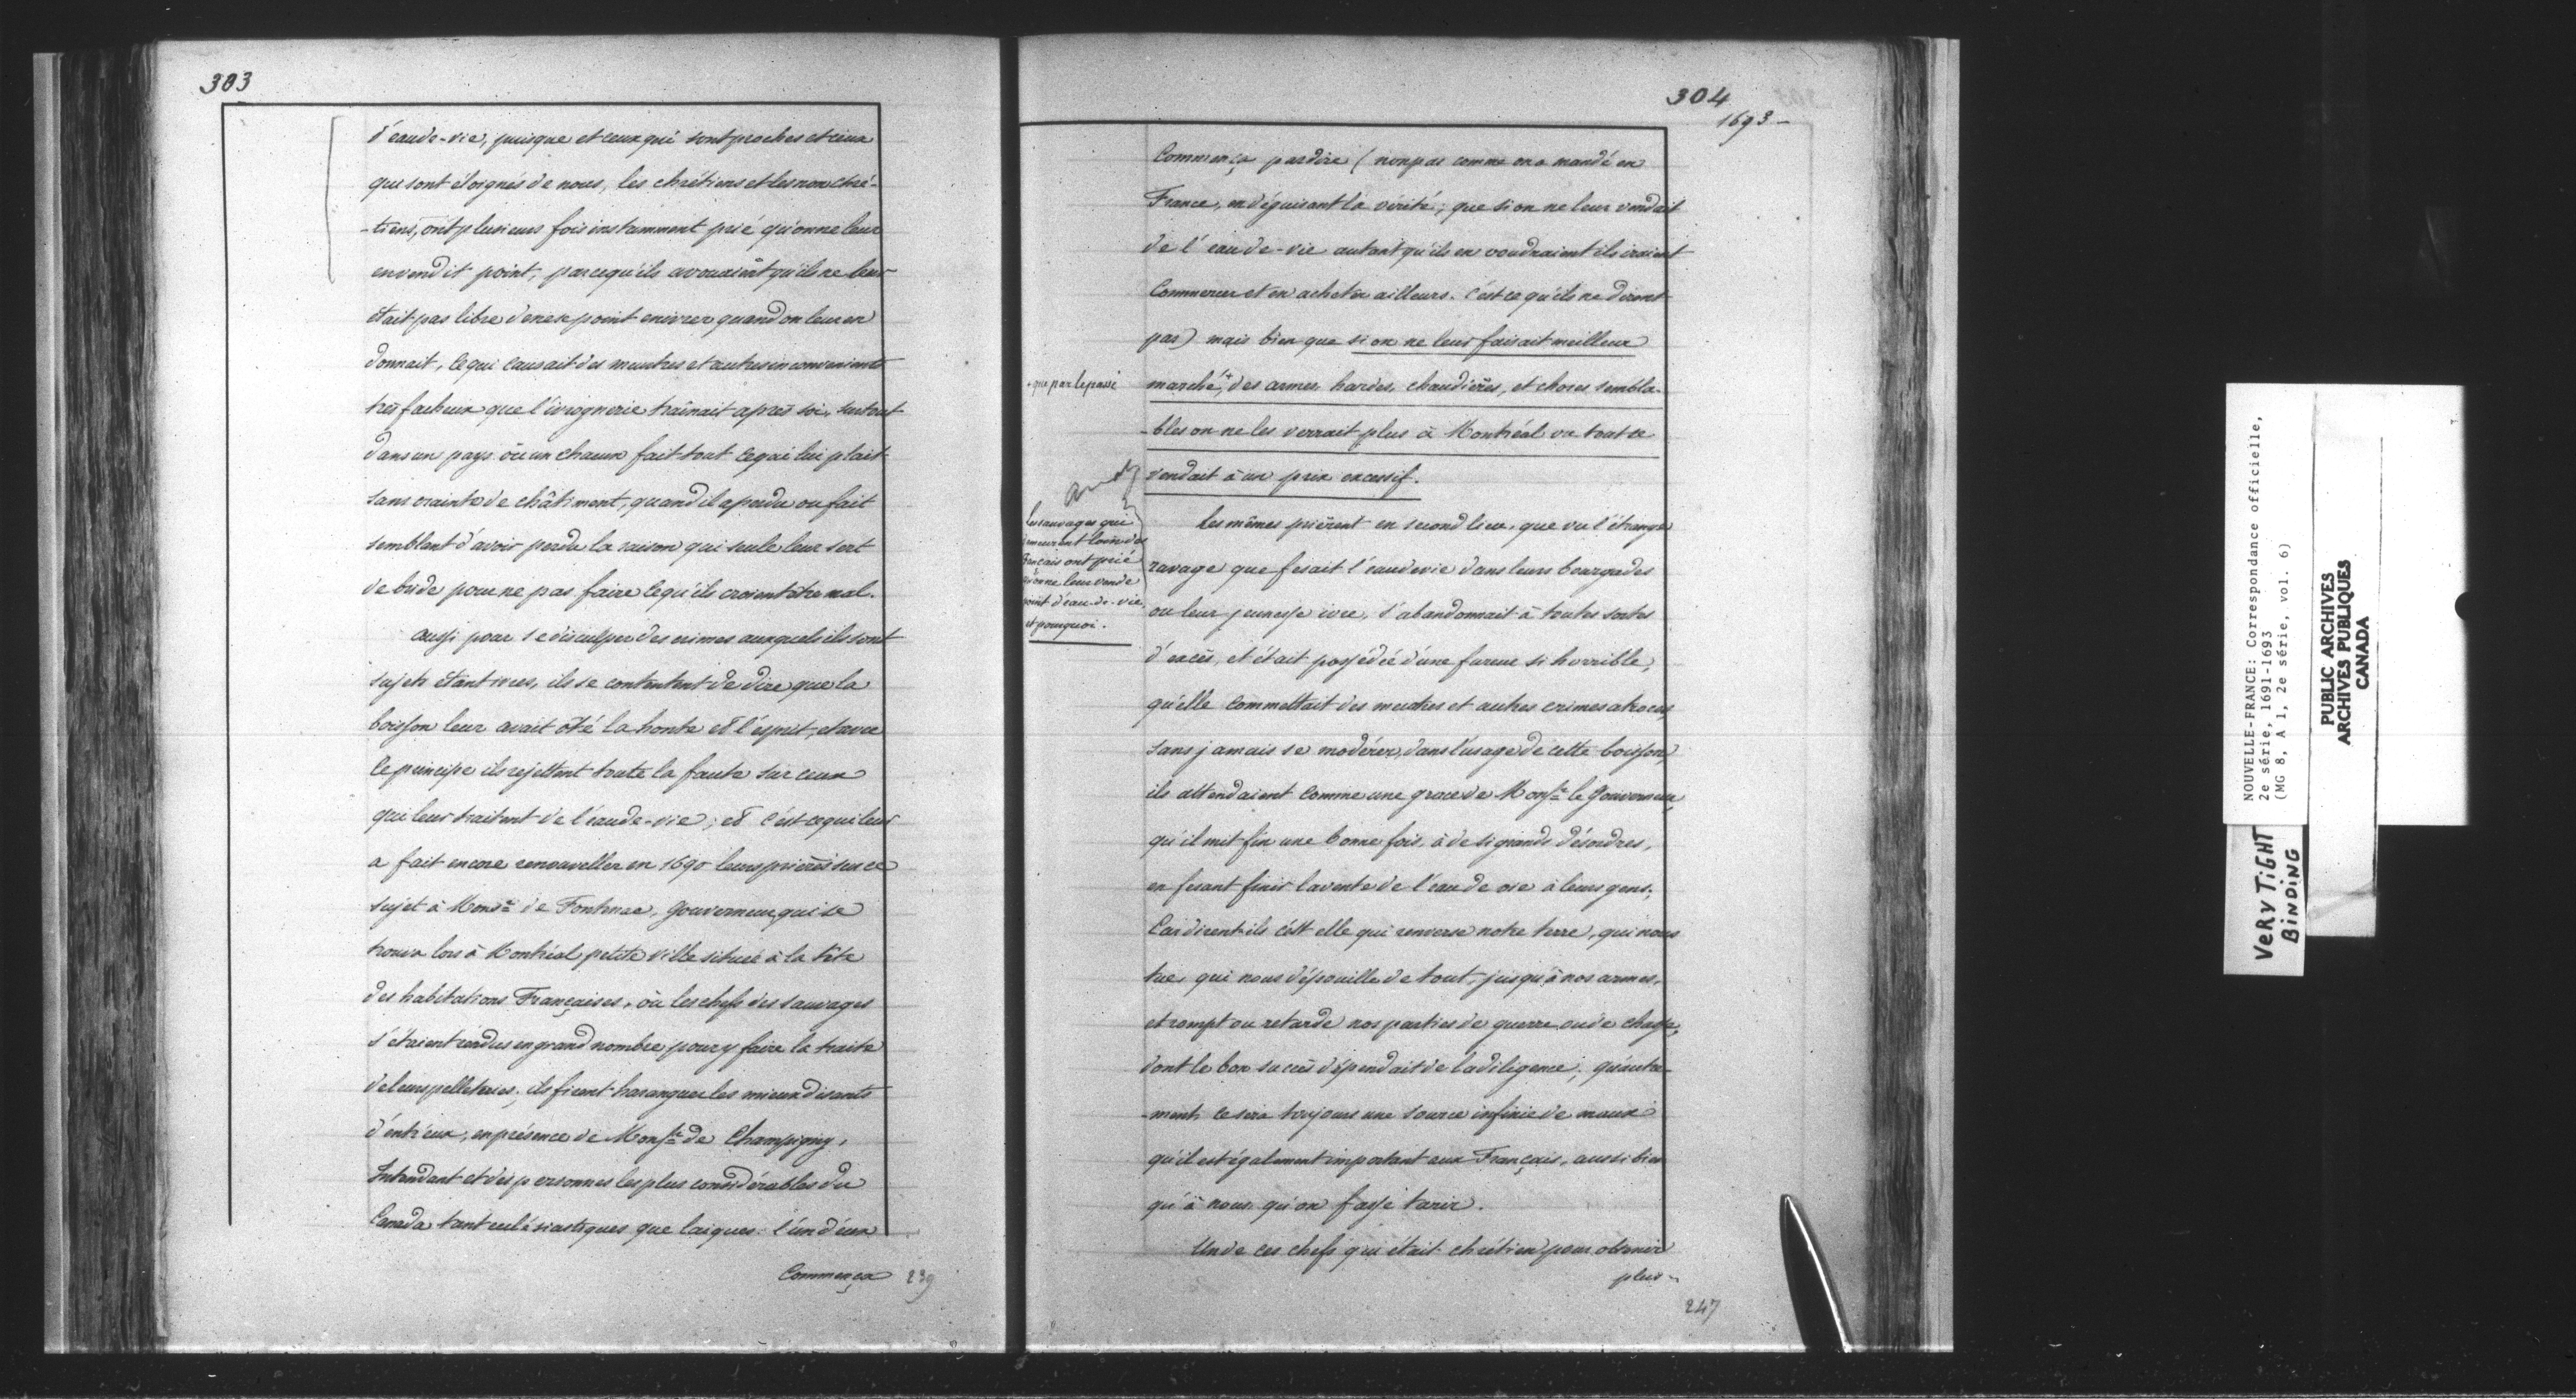 303
d'eau de-vie, puisque et ceux qui sont proches et ceux
qui sont éloignés de nous, les chrétiens et les non chré-
-tiens, ont plusieurs fois instamment prié qu'on ne leur
en vendit point, parcequ'ils avouaient qu'ils ne leur
était pas libre de ne point enivrer quand on leur en
donnait, ce qui causait des meurtres et autres inconvenients
très facheux que l'ivrognerie traînait après soi, surtout
dans un pays où un chacun fait tout ce qui lui plait
sans crainte de châtiment, quand il a perdu ou fait
semblant d'avoir perdu la raison qui seule leur sert
de bride pour ne pas faire ce qu'ils croient être mal.
aussi pour se disculper des crimes auxquels ils sont
sujets étant ivres, ils se contentent de dire que la
boisson leur avait ôté la honte et l'esprit, et avec
ce principe ils rejettent toute la faute sur ceux
qui leur traitent de l'eau de-vie; et c'est ce qui leur
a fait encore renouveller en 1690 leurs prières sur ce
sujet à Monsr. de Fontenac, gouverneur qui se
trouva lors à Montréal petite ville située à la tête
des habitations Françaises, où les chefs des sauvages
s'étaient rendus en grand nombre pour y faire la traite
de leurs pelleteries; ils firent haranguer les mieux disants
d'entr'eux, en présence de Monsr. de Champigny,
Intendant et des personnes les plus considérables du
Canada tant ecclésiastiques que laiques: l'un d'eux
Commença 239
304
1693-
Commença par dire (non pas comme on a mandé en
France, en déguisant la vérité, que si on ne leur vendait
de l'eau de-vie autant qu'ils en voudraient ils iraient
Commercer et en acheter ailleurs. C'est ce qu'ils ne dirent
pas) mais bien que si on ne leur faisait meilleur
+ que par le passé
marché + des armes, hardes, chaudières, et choses sembla-
-bles on ne les verrait plus à Montréal où tout se
vendait à un prix excessif.
Les sauvages qui
demeurent loin des
Français ont prié
qu'on ne leur vende
point d'eau-de-vie,
et pourquoi.
Les mêmes prièrent en second lieu, que vu l'étrange
ravage que fesait l'eau de vie dans leurs bourgades
ou leur jeunesse ivre, s'abandonnait à toutes sortes
d'excès, et était possédée d'une fureur si horrible,
qu'elle commettait des meurtres et autres crimes atroces,
sans jamais se modérer, dans l'usage de cette boisson,
ils attendaient comme une grace de Monsr. le Gouverneur
qu'il mit fin une bonne fois, à de si grands désordres,
en fesant finir la vente de l'eau de vie à leurs gens;
Car dirent-ils c'est elle qui renverse notre terre, qui nous
tue, qui nous dépouille de tout, jusqu'à nos armes,
et rompt ou retarde nos parties de guerre ou de chasse,
dont le bon succès dépendait de la diligence; qu'autre-
-ment, ce sera toujours une source infinie de maux
qu'il est également important aux Français, aussi bien
qu'à nous, qu'on fasse tarir.
Un de ces chefs qui était chrétien pour obtenir
plus -
247
NOUVELLE-FRANCE: Correspondance officielle,
2e série, 1691-1693
(MG 8, A 1, 2e série, vol. 6)
VERY TIGHT
BINDING
PUBLIC ARCHIVES
ARCHIVES PUBLIQUES
CANADA